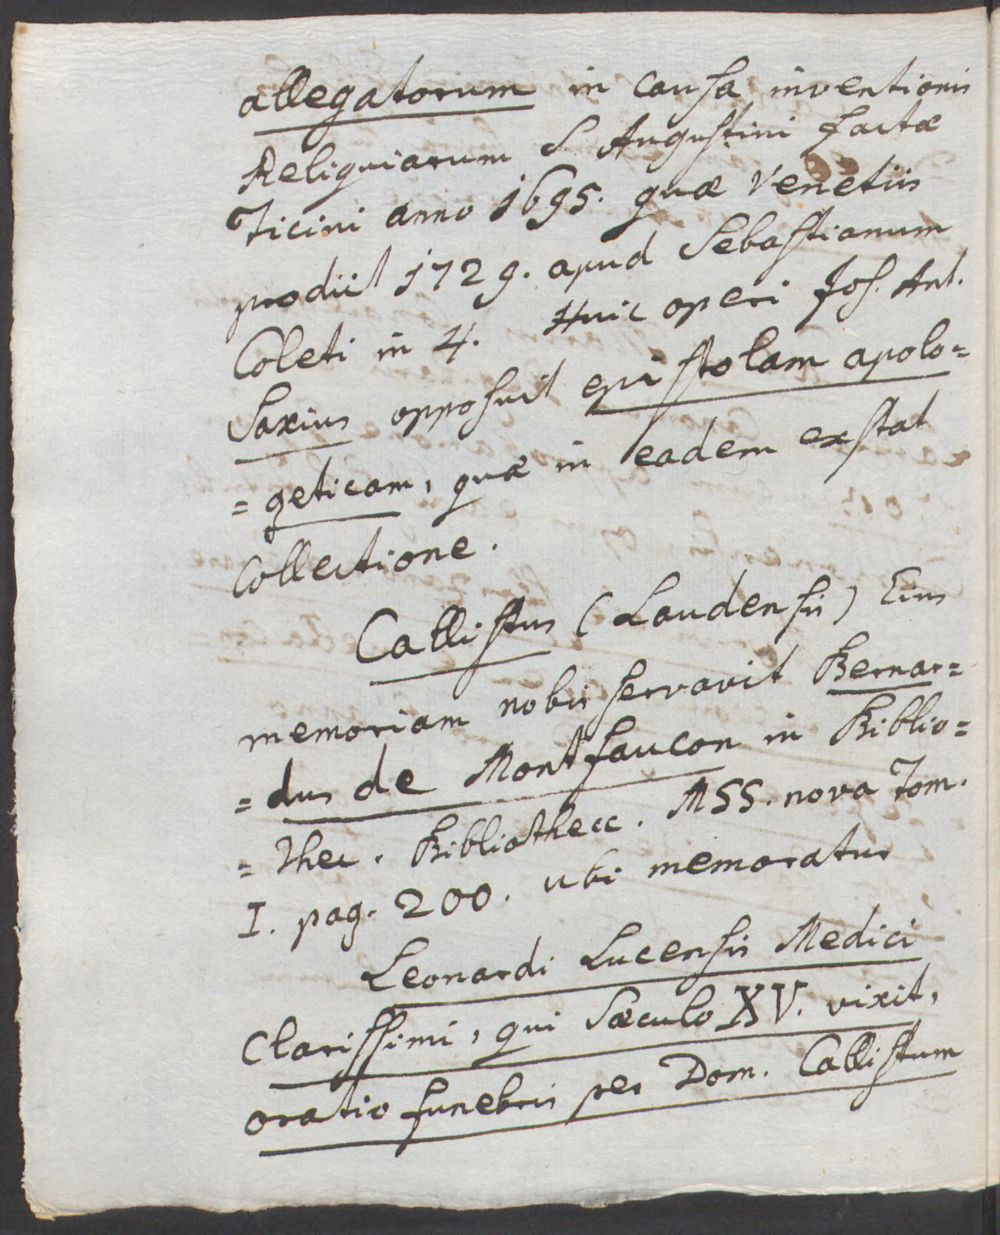 allegatorum in causa inventionis
Reliquiarum S. Augustini factæ
Ticini anno 1695. quæ Venetiis
prodiit 1729. apud Sebastianum
Coleti in 4. Huic operi Jos. Ant.
Saxius opposuit epistolam apolo=
=geticam, quæ in eadem exstat
Collectione.
Callistus (Laudensis) Eius
memoriam nobis servavit Bernar=
=dus de Montfaucon in Biblio=
=thec. Bibliothecc. MSS. nova Tom.
I. pag. 200. ubi memoratur
Leonardi Lucensis Medici
Clarissimi, qui Sæculo XV. vixit,
oratio funebris per Dom. Callistum